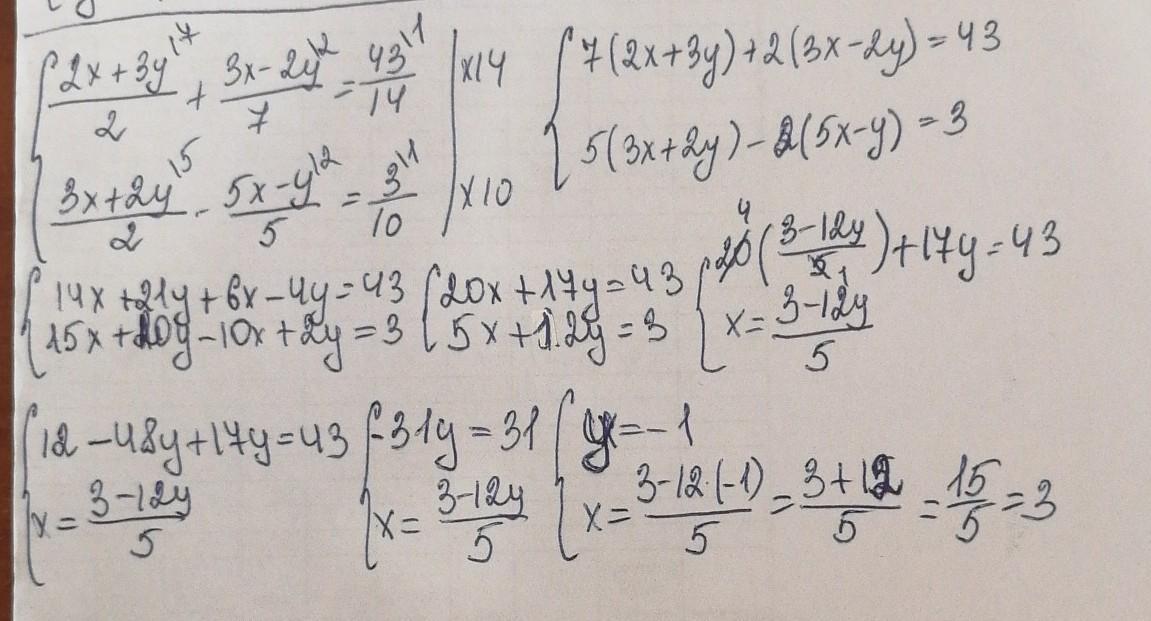 { (2x+3y)/2 \7 + (3x-2y)/7 \2 = 43/14 \1 | x14
(3x+2y)/2 \5 - (5x-y)/5 \2 = 3/10 \1 | x10
{ 7(2x+3y)+2(3x-2y)=43
5(3x+2y)-2(5x-y)=3
{ 14x+21y+6x-4y=43
15x+10y-10x+2y=3
{ 20x+17y=43
5x+12y=3
{ 20 4 ((3-12y)/5 1)+17y=43
x=(3-12y)/5
{ 12-48y+17y=43
x=(3-12y)/5
{ -31y=31
x=(3-12y)/5
{ y=-1
x=(3-12·(-1))/5=(3+12)/5=15/5=3